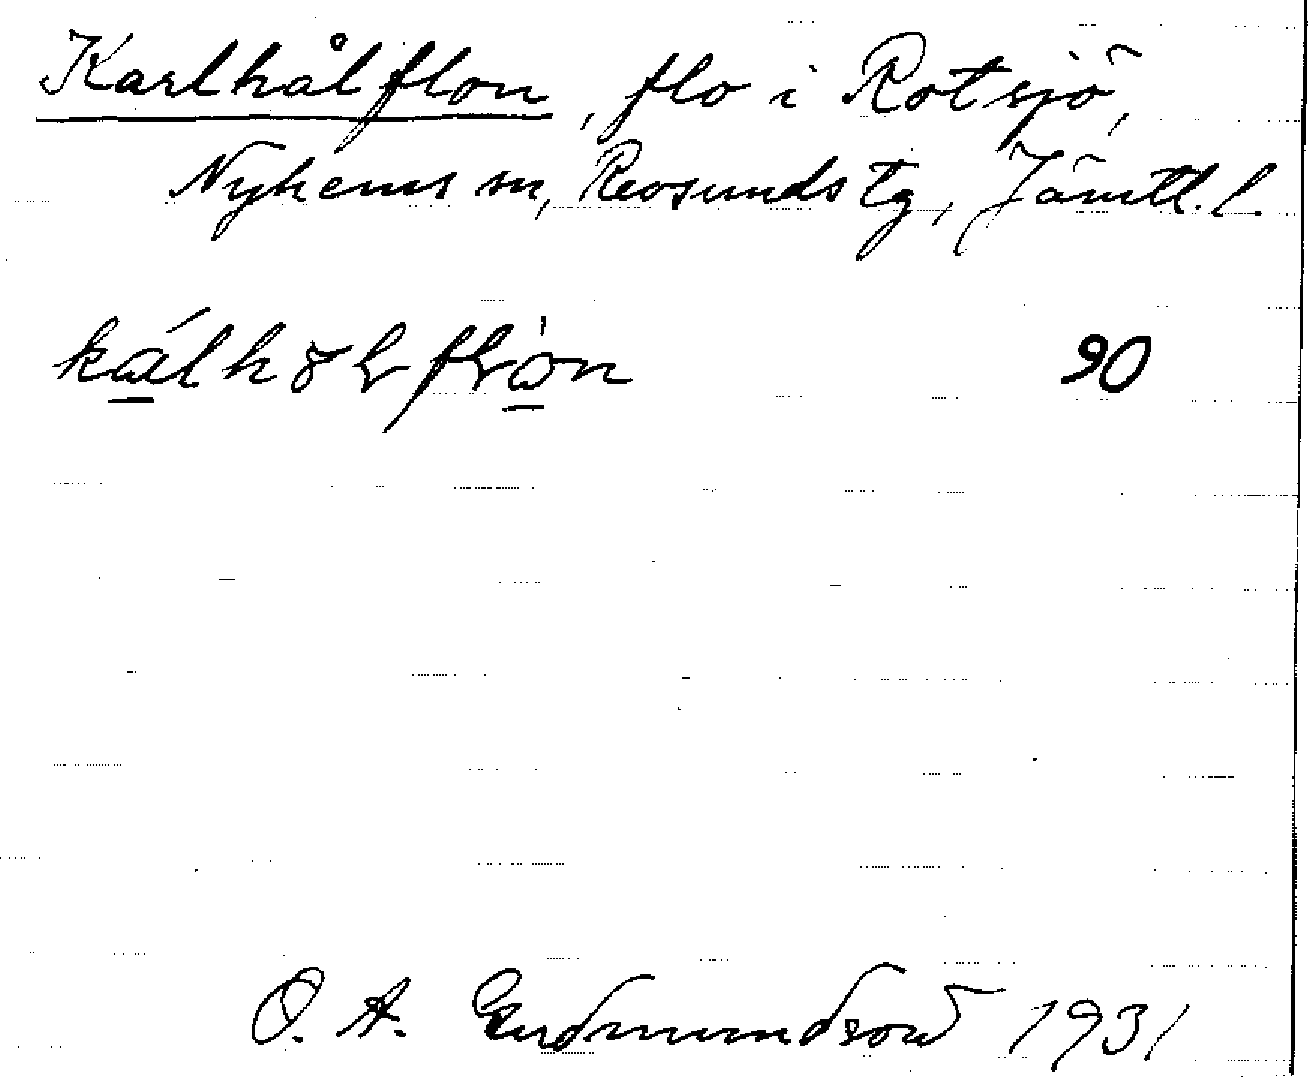 Karlhålflon, flo i Rotsjö,
Nyhems sn, Revsunds tg, Jämtl. l.
90
O. A. Gudmundson 1931